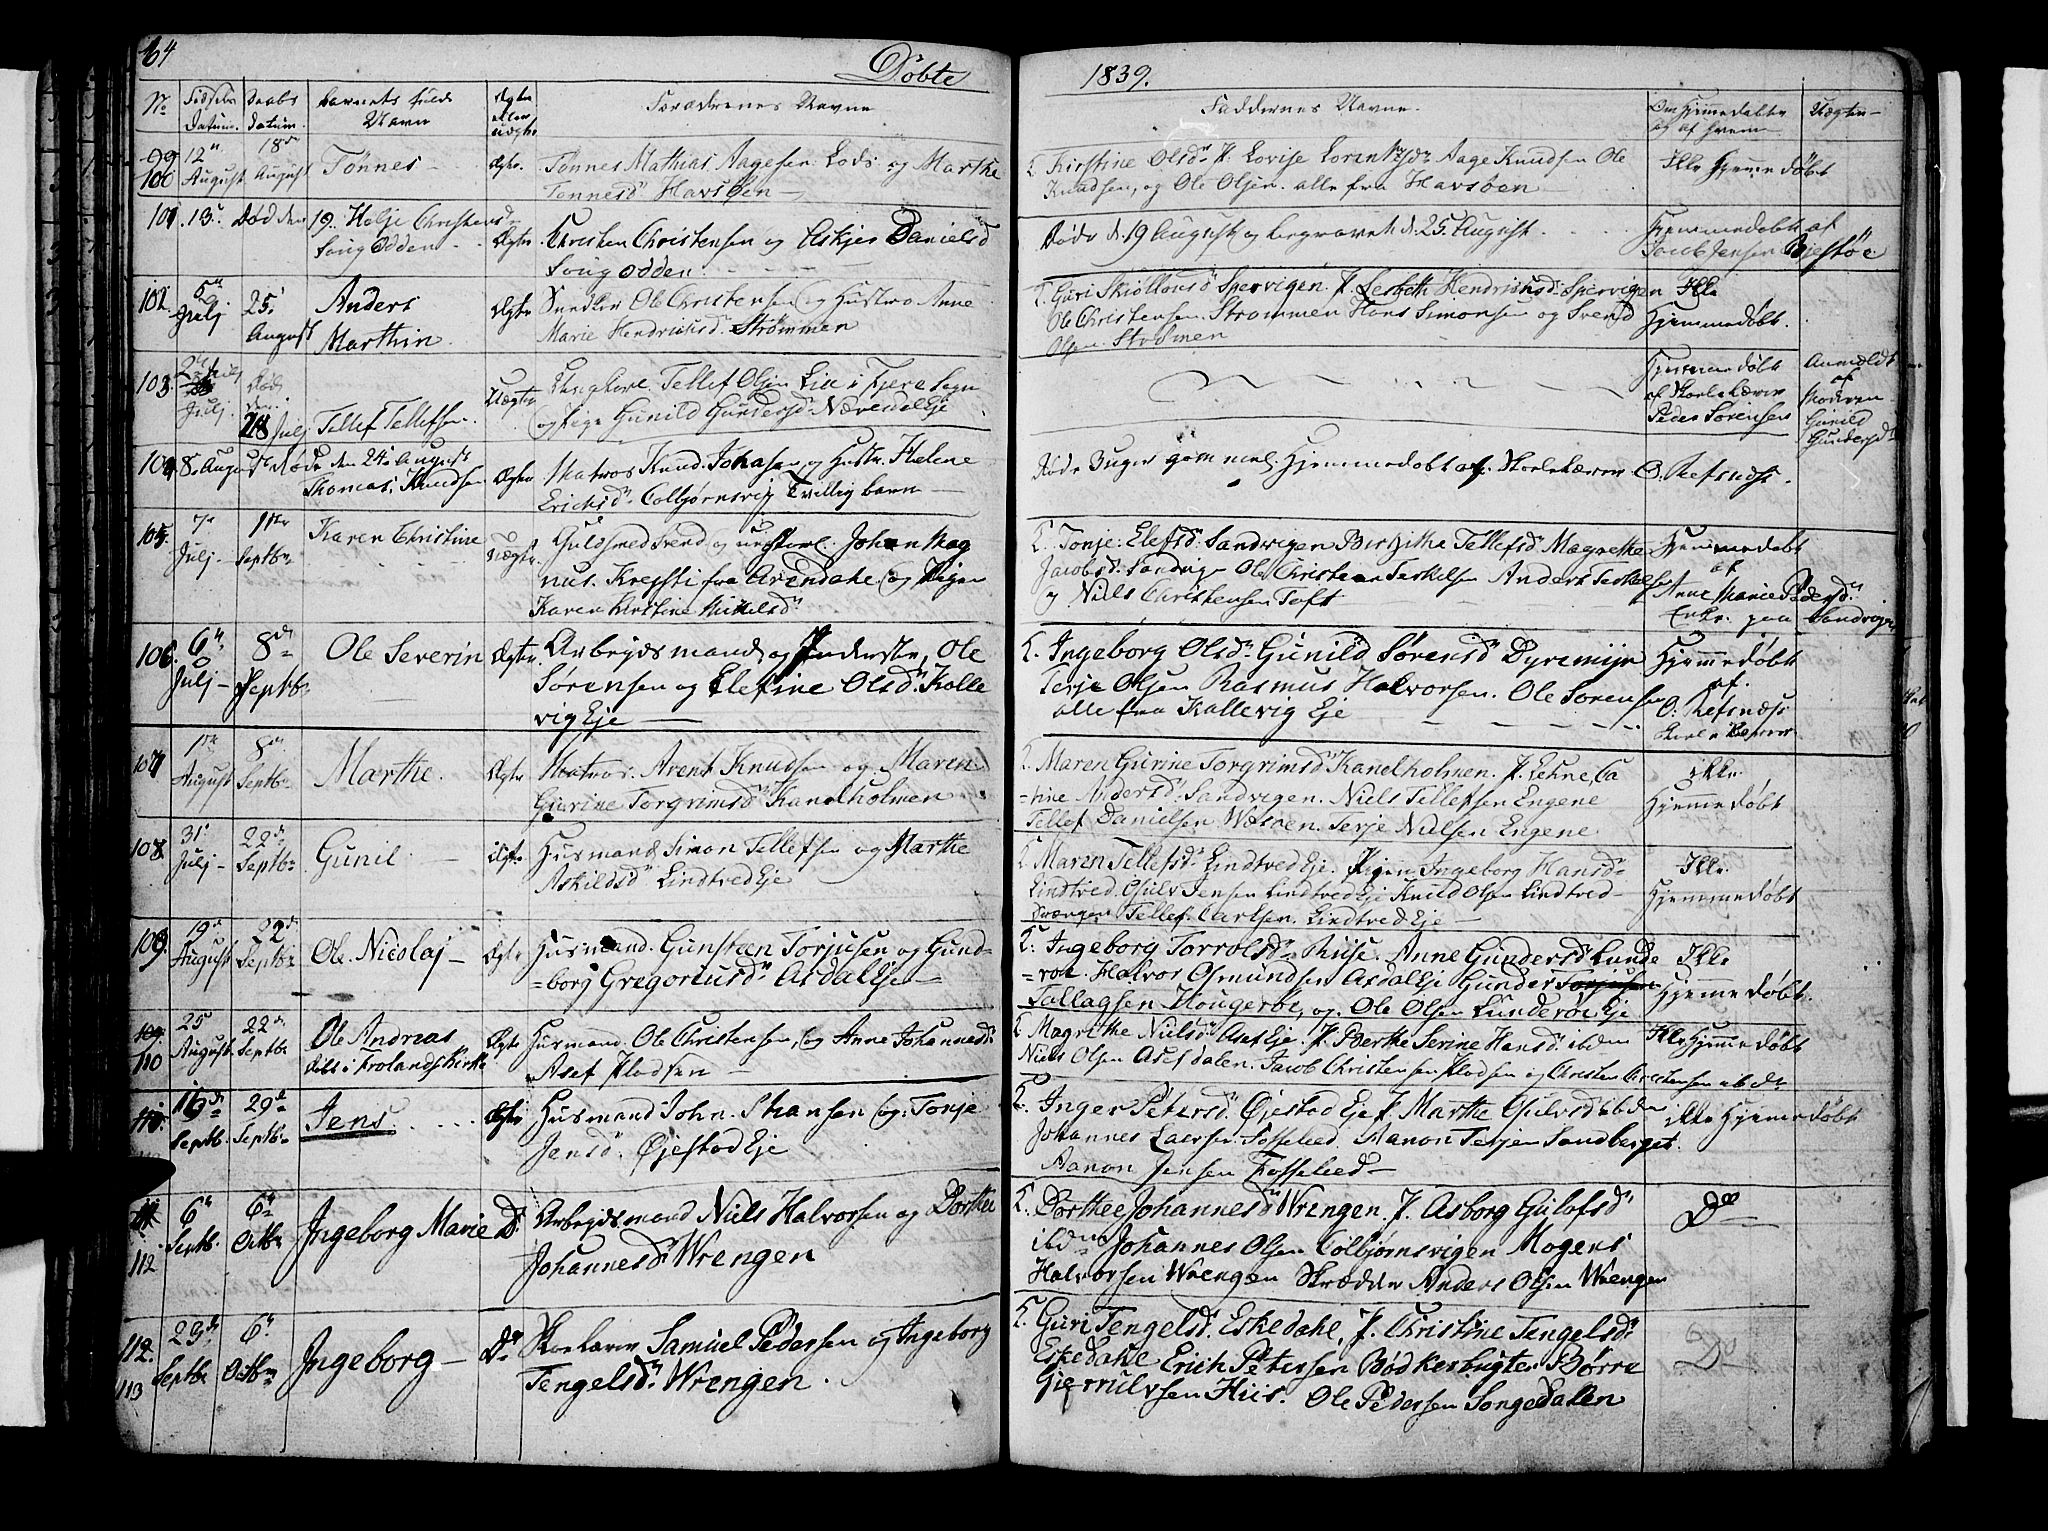 64
Döbte
1839.
No
Fødsels Datum
Daabs Datum
Barnets fulde Navn
Ægte eller uægte
Forældrenes Navne
Faddernes Navne
Om Hjemmedøbte og af hvem
99
100
12 August
18de August
Tønnes
Ægte
Tønnes Mathias Aagesen Lods og Marthe
Tønnesd Havsøen
Kirstine Olsd P. Lovise Lorentzsd Aage Knudsen Ole
Knudsen, og Ole Olsen alle fra Havsøen
Ikke Hjemmedøbt
101
13
Død den 19
Christensd
Songe Odden
Ægte
Christen Christensen og Askjer Danielsd
Songe Odden
Døde d. 19 August og begravet d. 25 August
Hjemmedøbt af
Jacob Jensen
102.
5 Julj
25 August
Anders
Marthin.
Ægte
Ole Christensen og Hustro Anne
Marie Hendriksd. Strømmen
Guri Spervigen. P. Lesbeth Hendriksd Spervigen
Ole Christensen Strommen Hans Simonsen og Svend
Olsen
Ikke
Hjemmedøbt.
103
Julj
Død den
28 Julj
Tellef Tellefsen
Uægte
Ungkarl Tellef Olsen Lie i Fjere Sogn
og Pige Gunild Gundersd Næredal Eje
Hjemmedøbt
af Skolelærer
Peder Sørensen
Anmeldt
af
Moderen
Gunild
Gundersd
104
8 August
Døde den 24 August
Thomas Knudsen
Ægte
Matros Knud Johnsen og Hustr. Helene
Ericksd. Colbjørnsvig Tvilling barn
Døde 3 uger gammel. Hjemmedøbt af Skolelærer O. Refsnæs.
105
7 Julj
1ste Septbr
Karen Christine
Uægte
Guldsmed Svend og ungkarl Johan Mag
nus. Krefsti fra Arendahl og Pigen
Karen Kirstine Nielsd
Tonje Elefsd Sandvigen Birgithe Tellefsd Magrethe
Jacobsd Sandvigen Ole Christian Terkelsen Anders Terkelsen
og Niels Christensen Toft
Hjemmedøbt
af
Anne Marie Pedersd
Enke paa Sandvigen
106.
6 Julj
8de Septbr
Ole Severin
Ægte
Arbejdsmand og Inderste, Ole
Sørensen og Elefine Olsd. Kalle
vig Eje
Ingeborg Olsd Gunild Sørensd Dyremijr
Terje Olsen Rasmus Halvorsen. Ole Sørensen
alle fra Kallevig Eje
Hjemmedøbt
af.
O: Refsnæs
107
1ste August
8de Septbr
Marthe.
Ægte
Matros. Arent Knudsen og Maren
Gurine Torgrimsd Kanelholmen
Maren Gurine Torgrimsd Kanelholmen. P. Lehne, Ca
tine Andersd. Sandvigen. Niels Tellefsen Engene
Tellef Danielsen Terje Nielsen Engene
ikke
Hjemmedøbt
108
31 Julj
22de Septbr
Gunil
Ægte
Husmand Simon Tellefsen og Marthe
Askildsd Lindtved Eje
Maren Tellefsd. Lindtved Eje. Pigen Ingeborg Hansd
Lindtved Gjulv Jensen Lindtved Eje Knud Olsen Lindtved
Tellef Carlsen. Lindtved Eje
Ikke
Hjemmedøbt
109.
19de August
22de Septbr
Ole Nicolaj
Ægte
Husmand. Gunsteen Torjusen og Gund-
borg Gregoriusd Asdal Eje
Ingeborg Tarrolsd Riise. Anne Gundersd Lunde
röe. Halvor Osmundsen Asdal Eje Gunder Torjusen
Tallagsen Hougerøe, og Ole Olsen Lunderöe Eje
Ikke
Hjemmedøbt.
109
110
25 August
22de Septbr
Ole Andreas
Døbt i Frolands Kirke
Ægte
Husmand. Ole Christensen, og Anne Johannesd
Asef Pladsen
Magrethe Nielsd Asef Eje. P. Berthe Serine Hansd. ibdm
Niels Olsen Asefdalen. Jacob Christensen Pladsen og Christen Christensen ibdm
Ikke Hjemmedøbt
110.
16de Septbr.
29de Septbr
Jens.
Ægte
Husmand John. Hansen og Tonje
Jensd. Øjestad Eje
Inger Petersd. Øjestad Eje P. Marthe Gjulvsd ibdm
Johannes Laersen Fosselied. Manon Terjen Sandberget.
Aanon Jensen Fosselied
ikke Hjemmedøbt
111
112
6 Septb.
6 Octbr
Ingeborg Marie
Do
Arbejdsmand Niels Halvorsen og Dorthe
Johannesd Wrengen
Dorthee Johannesd Wrengen. P. Asborg Gulofsd
ibdm Johannes Olsen Colbjørnsvigen Mogens
Halvorsen Wrengen Skrædder Anders Olsen Wrengen
Do
112.
113
23de Septbr
6 Octbr
Ingeborg
Do
Skolelærer Samuel Pedersen og Ingeborg
Tengelsd Wrengen.
Guri Tengelsd. Eskedahl, P. Christine Tengelsd
Eskedahl Erich Petersen Bødkerbugten Børre
Gjerrulvsen Hiis. Ole Pedersen Songedalen
Do